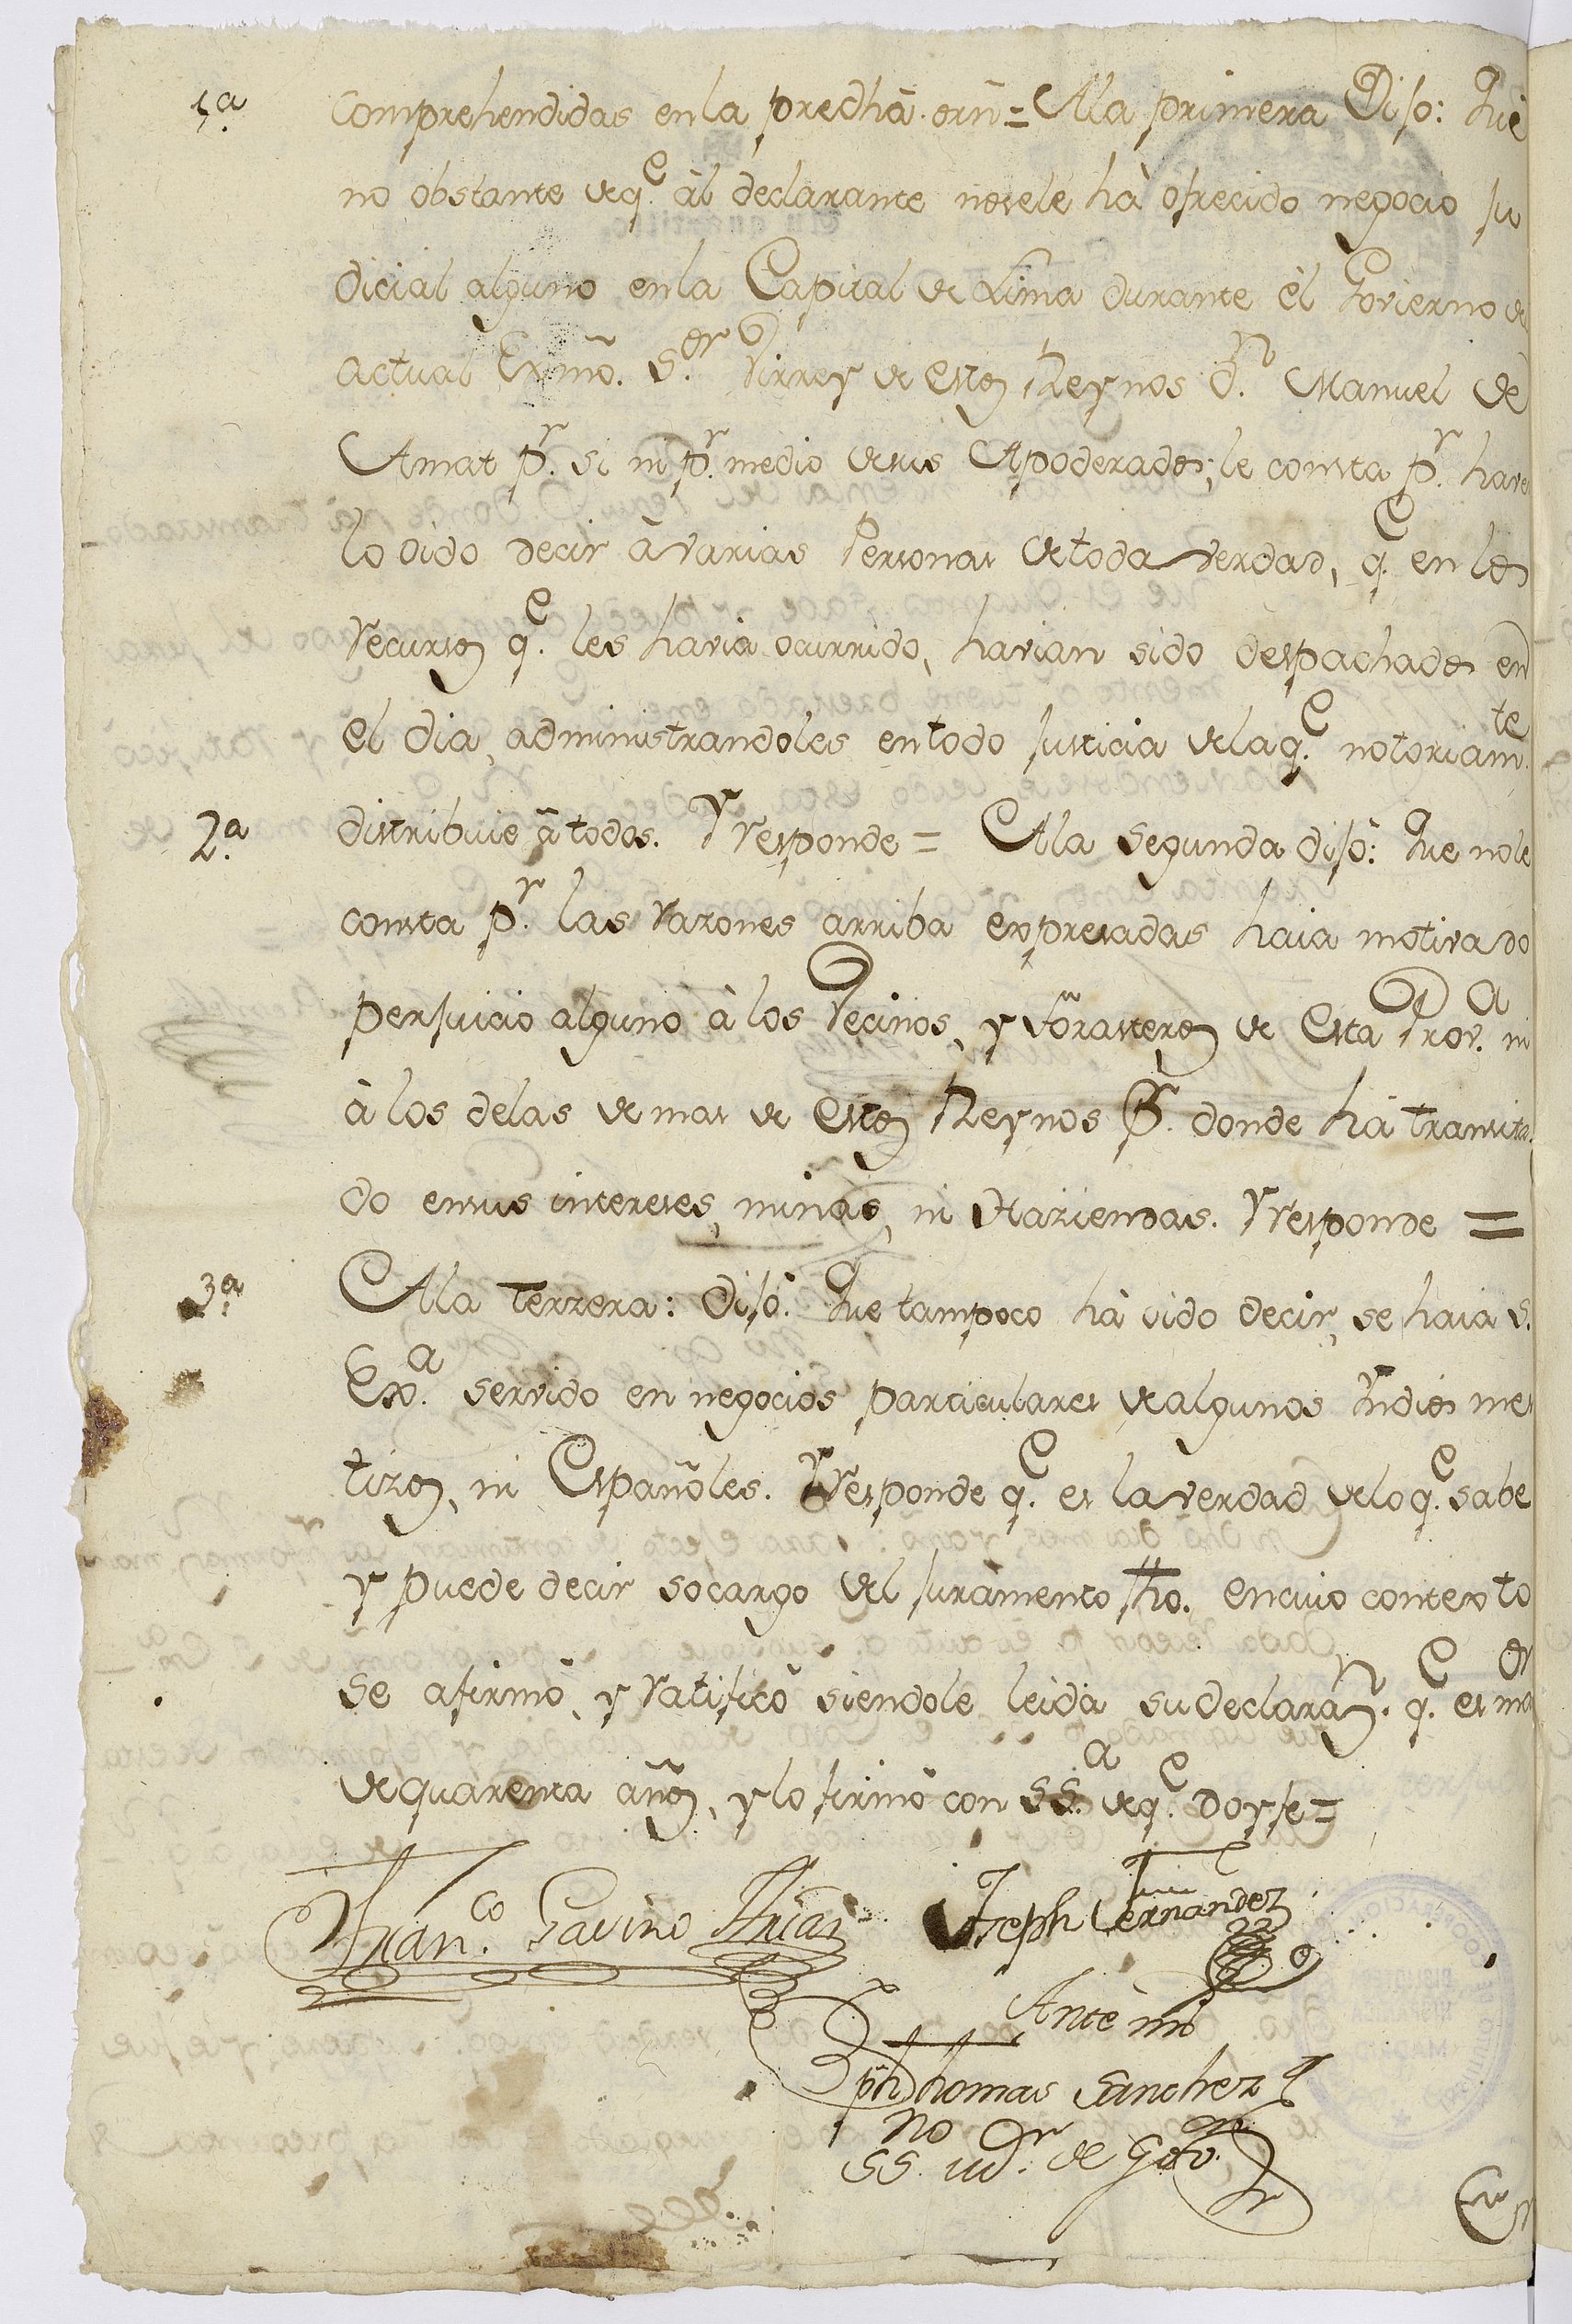 1.ª comprehendidas en la predhã. orñ = A la primera Dijo: Que
no obstante de q.e àl declarante no se le hà ofrecido negocio ju
dicial alguno en la Capital de Lima durante èl Govierno de
actual Exmõ. S.or Virrey de estos Reynos D.n Manuel de
Amat p.r si ni p.r medio de sus Apoderados; le consta p.r haver
lo oido decir à varias Personas de toda verdad, q.e en los
recursos q.e les havia ocurrido, havian sido despachados en
el dia, administrandoles en todo Justicia de la q.e notoriam.te
2.ª distribuie à todos. Y responde = A la segunda dijo: Que no le
consta p.r las razones arriba expresadas haia motivado
perjuicio alguno à los Vecinos, y forasteros de esta Prov.a ni
à los de las demas de estos Reynos P.r donde hà transita
do en sus intereses, minas, ni Haziendas. Y responde =
3.ª A la terzera: dijo: Que tampoco hà oido decir, se haia S.
Ex.a servido en negocios particulares de algunos Yndios mes
tizos, ni Españoles. Y responde q.e es la verdad de lo q.e sabe
y puede decir so cargo del juramento fho. en cuio contexto
se afirmò, y ratificò siendole leida su declaraz.n q.e es mor
de quarenta años, y lo firmò con SS.a de q.e doy fe =
Fran.co Gavino Arias Joseph Fernandez
Ante mi
Thomas Sanchez
SS.no de Gov.no